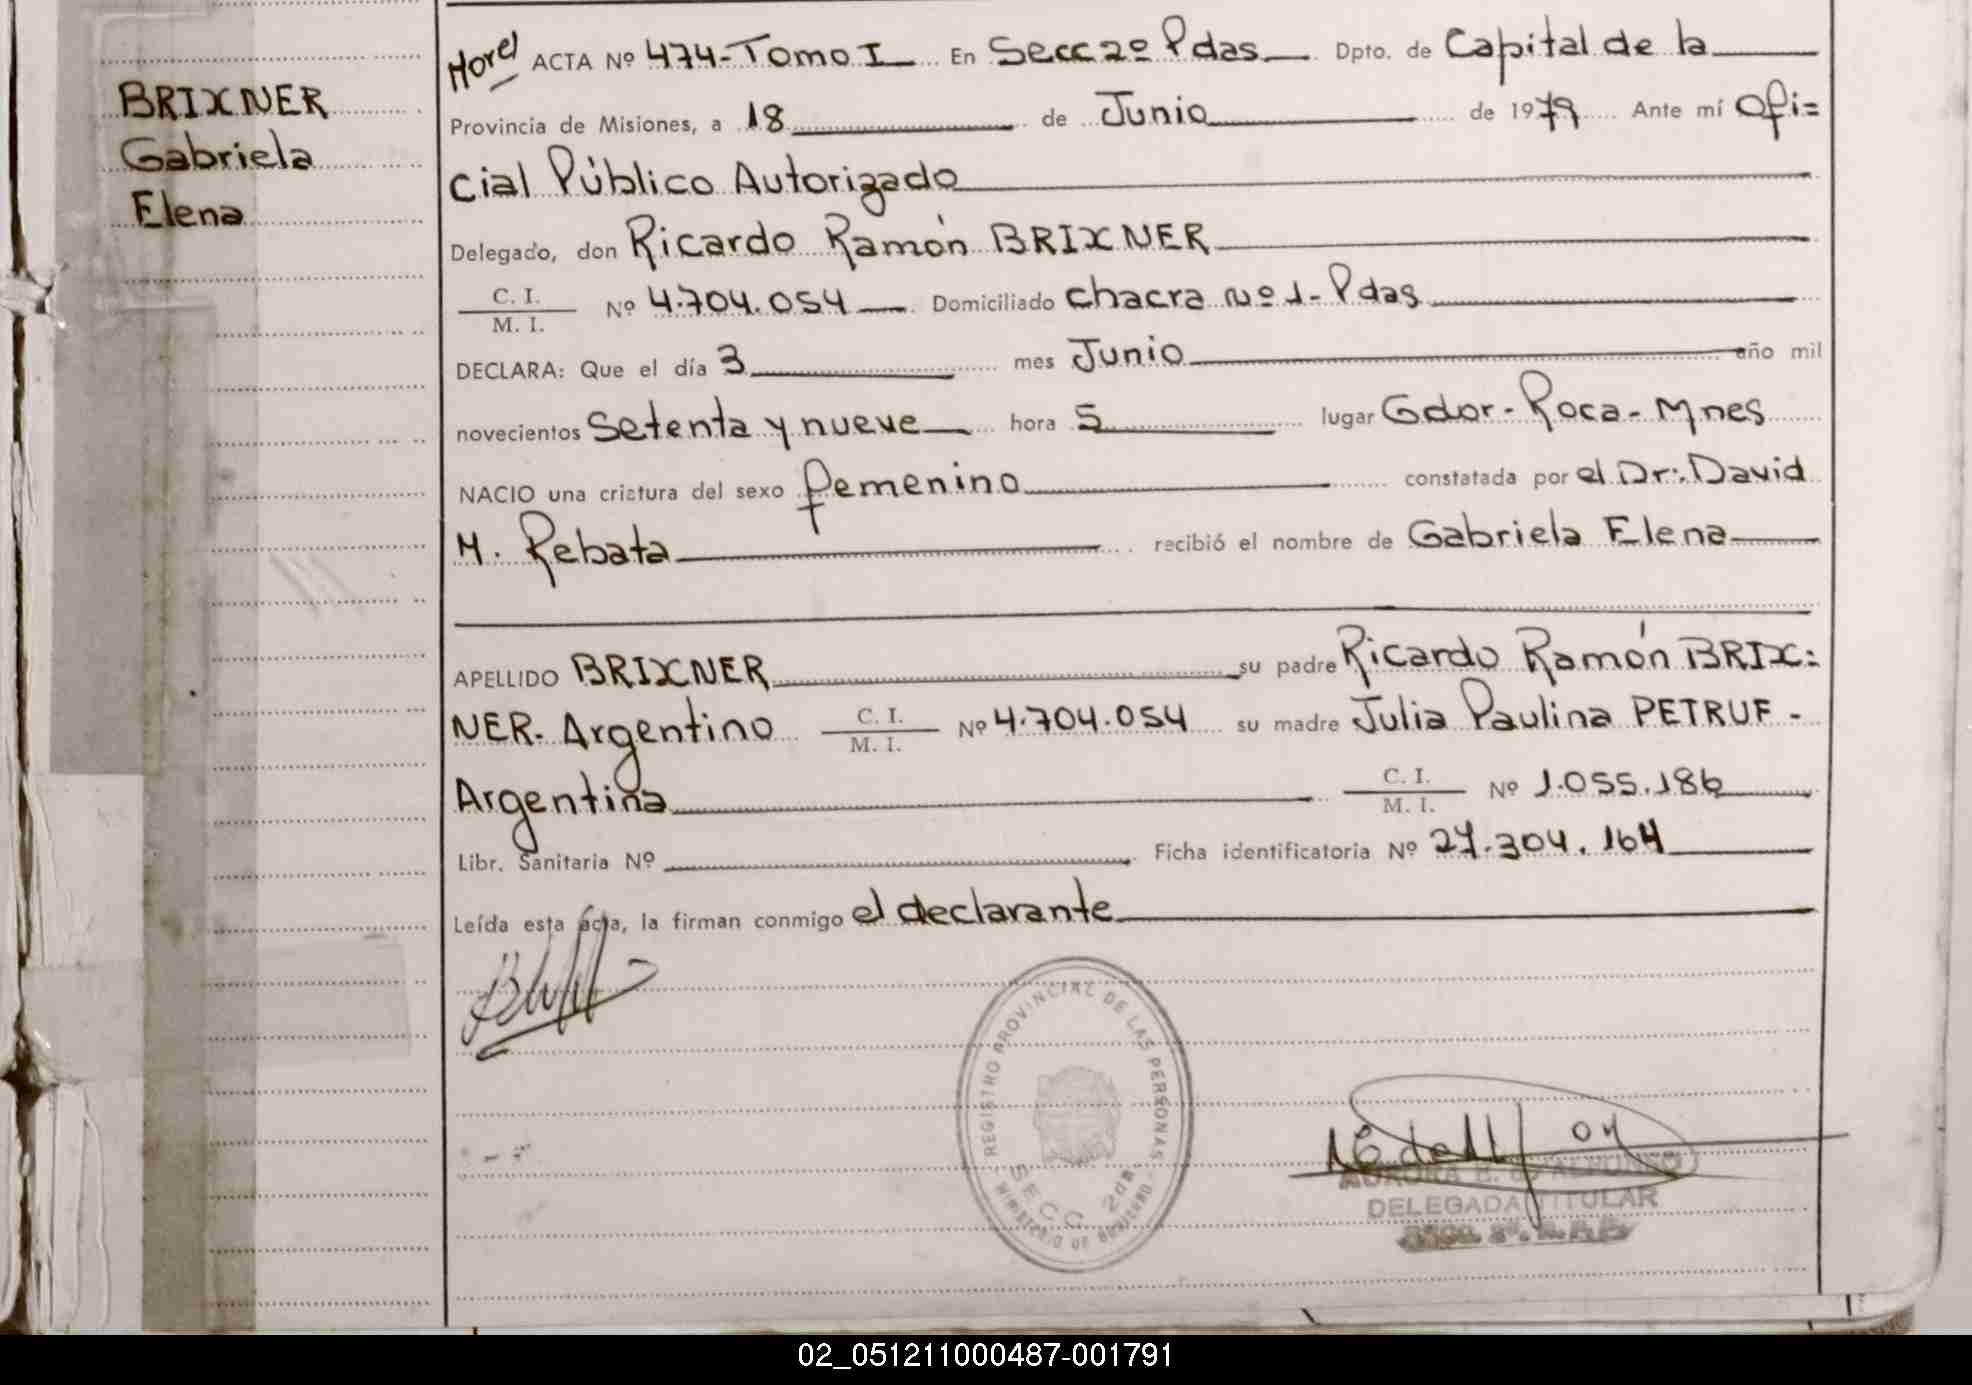 BRIXNER
Gabriela
Elena
ACTA Nº 474-Tomo I En Secc 2º Pdas Dpto. de Capital de la
Provincia de Misiones, a 18 de Junio de 1979 Ante mí Ofi=
cial Público Autorizado
Delegado, don Ricardo Ramón BRIXNER
C. I.
M. I. Nº 4.704.054 Domiciliado chacra nº 1- Pdas
DECLARA: Que el día 3 mes Junio año mil
novecientos setenta y nueve hora 5 lugar Gdor- Roca- Mnes
NACIO una criatura del sexo femenino constatada por el Dr: David
M. Rebata recibió el nombre de Gabriela Elena
APELLIDO BRIXNER su padre Ricardo Ramón BRIX=
NER- Argentino C. I.
M. I. Nº 4.704.054 su madre Julia Paulina PETRUF -
Argentina C. I.
M. I. Nº 1.055.186
Libr. Sanitaria Nº Ficha identificatoria Nº 27.304.164
Leída esta acta, la firman conmigo el declarante
REGISTRO PROVINCIAL DE LAS PERSONAS
SECC 2da
MINISTERIO DE GOBIERNO
DELEGADA TITULAR
02_051211000487-001791